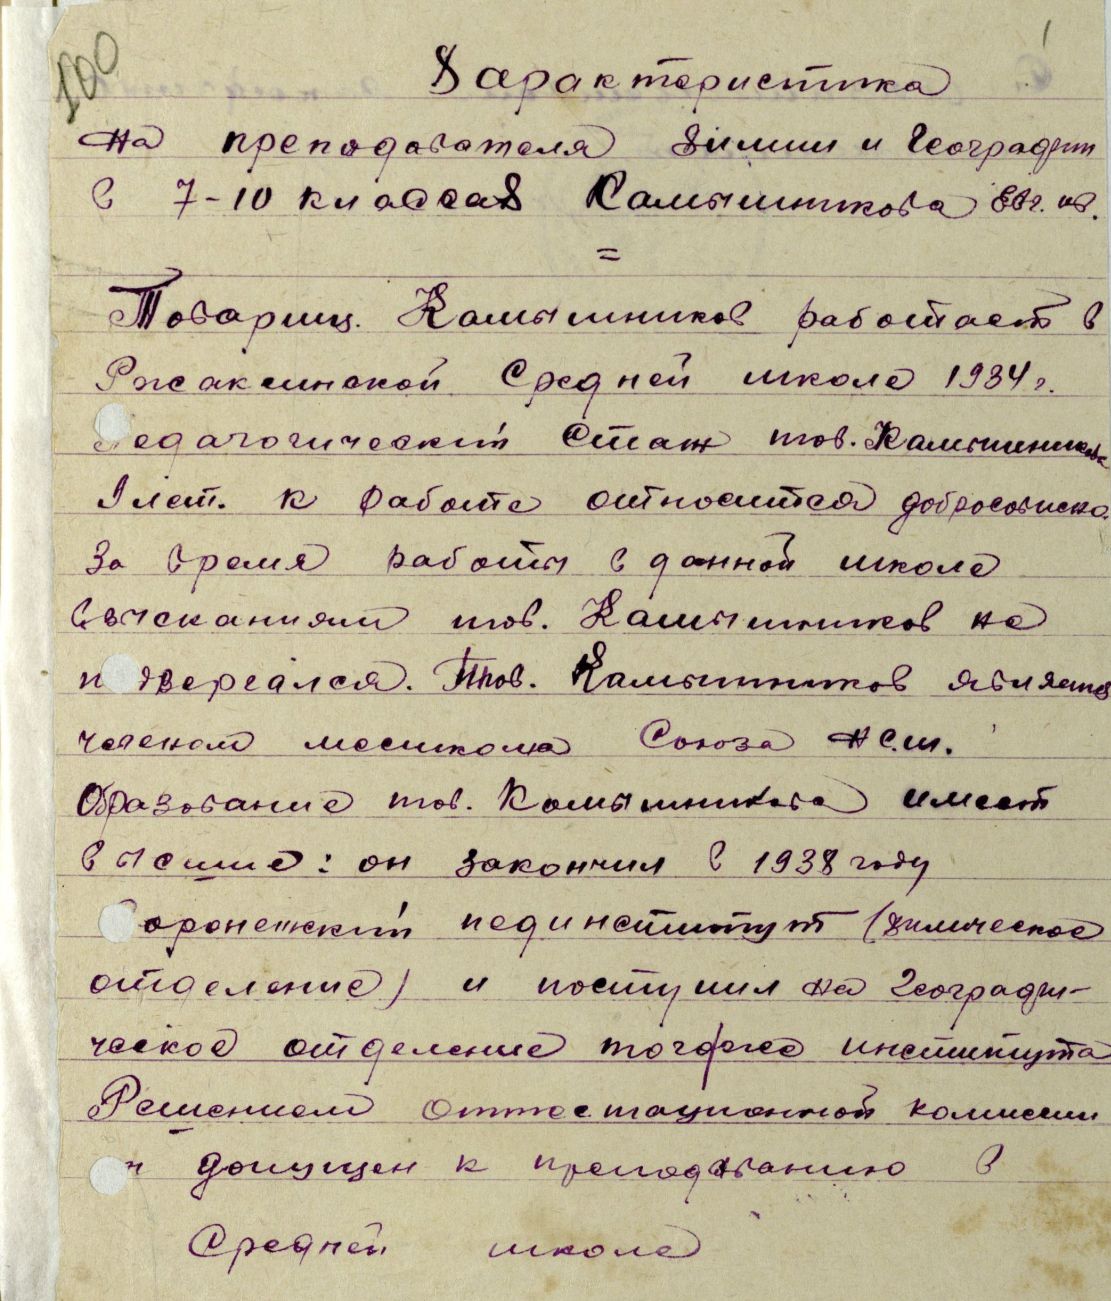 100
Характеристика
на преподователя химии и географии
в 7-10 классах Камышникова Евг. ив.
=
Товарищ. Камышников работает в
Ржаксинской Средней школе 1934 г.
Педагогический стаж тов. Камышникова
9 лет. к работе относится добросовисно.
За время работы в данной школе
взысканиям тов. Камышников не
подвергался. Тов. Камышников является
членом месткома Союза НС.ш.
Образование тов. Камышникова имеет
высшие: он закончил в 1938 году
Воронежский пединститут (химическое
отделение) и поступил на географи-
ческое отделение тогоже института
Решением оттестационной комиссии
он допущен к преподованию в
Средней школе